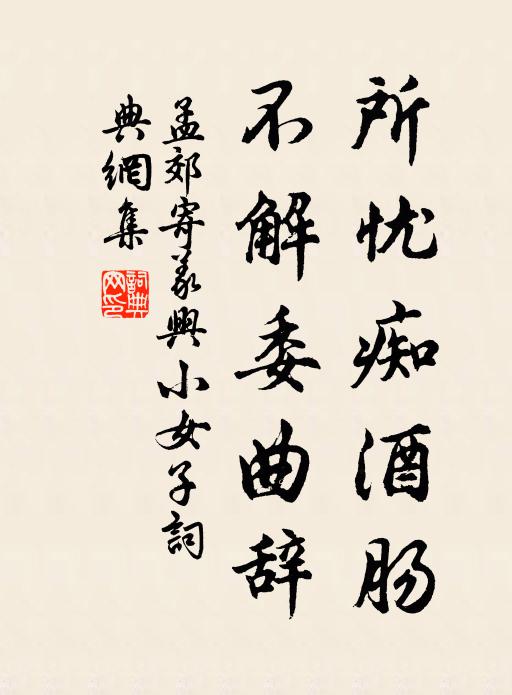 所忧痴酒肠
不解委曲辞
孟郊寄义興小女子詞
典網集
詞典
网印